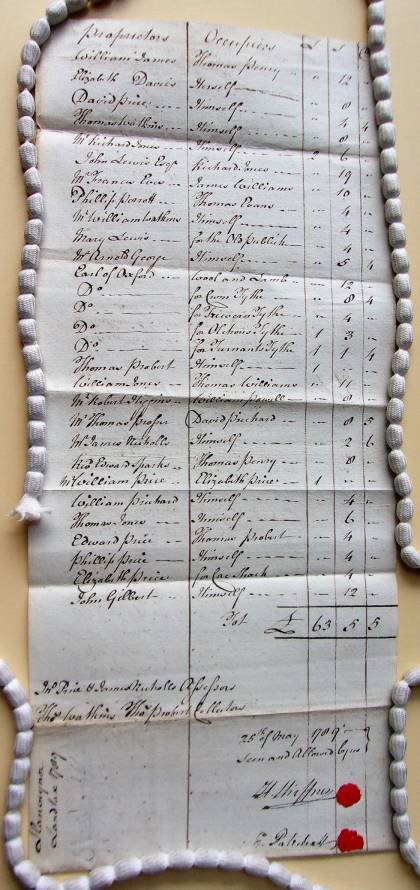 Proprietors Occupiers £ s d
William James Thomas Penry " 12 "
Elizabeth Davis Herself
David Price Himself 8 "
Thomas Watkins Himself 4 4
Mr Richard Jones Himself 8
John Lewis Esqr Richard Jones 2 6
Mr Francis Eves James Williams 19 "
Phillip Parrott Thomas Evans 10
Mr William Watkins Himself 4
Mary Lewis for the Old 4
Mr Arnold George Himself 5 4
Earl of Oxford Wool and Lamb 12 "
Do for Cwm Tythe 8 4
Do for Trewern Tythe 4
Do for Olchons Tythe 1 3 "
Do for Turnants Tythe 1 1 4
Thomas Probert Himself 1
William Jones Thomas Williams " 11
Mr Robert Higgins William Powell 8
Mr Thomas Prosser David Prichard 8 5
Mr James Nicholls Himself 2 6
Edward Sparks Thomas Penry 8 "
Mr William Price Elizabeth Price 1
William Prichard Himself 4
Thomas Jones Himself 6
Edward Price Thomas Probert 4
Phillip Price Himself 4
Elizabeth Price for 4
John Gilbert Himself 12
Tot £ 63 5 5
Price & James Nicholls Assessors
Thos Watkins Thos Probert Collectors
25th of May
Seen and Allowed by us
Land tax